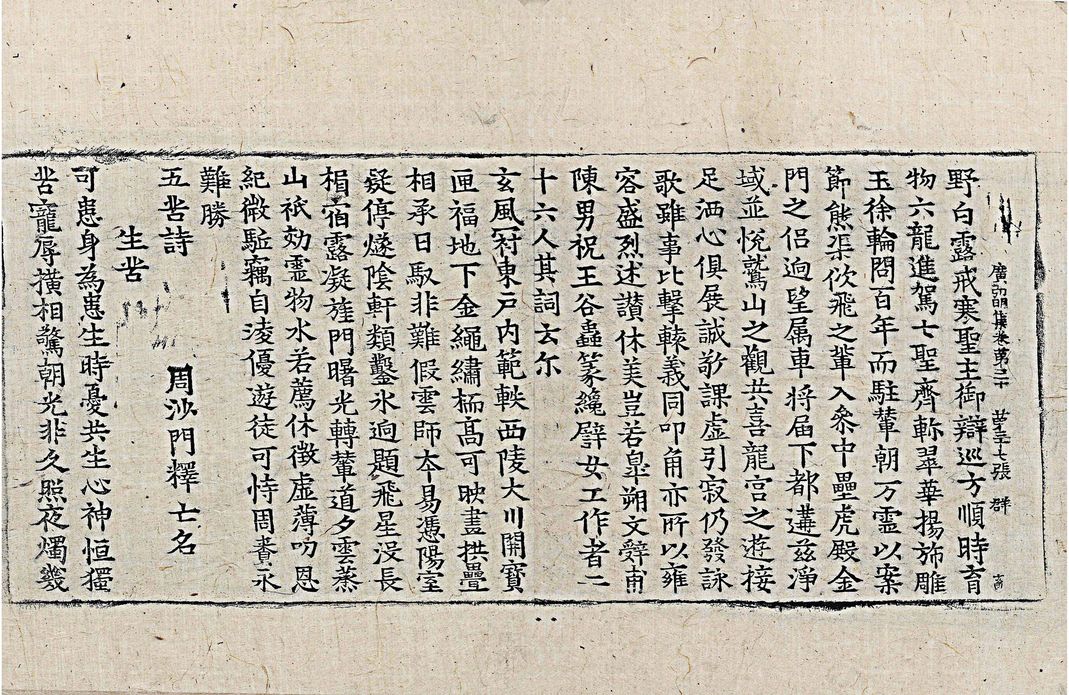 廣弘明集卷第三十 第三十七張 群
野白露戒寒聖主御辯巡方順時育
物六龍進駕七聖齊軫翠華揚斾雕
玉徐輪問百年而駐輦朝万靈以案
節熊渠佽飛之輩入叅中壘虎殿金
門之侶迾望属車將届下都遘兹淨
域並悅鷲山之觀共喜龍宮之遊接
足洒心俱展誠敬課虛引寂仍發詠
歌雖事比擊轅義同叩角亦所以雍
容盛烈述讃休美豈若皐朔文辤甫
陳男祝王谷蟲篆纔譬女工作者二
十六人其詞云尒
玄風冠東戶內範軼西陵大川開寶
匣福地下金繩繡栭高可映畫拱疊
相承日馭非難假雲師本易憑陽室
疑停燧陰軒類鑿氷迾題飛星没長
楣宿露凝旌門曙光轉輦道夕雲蒸
山祇効靈物水若薦休徵虛薄叨恩
紀微駈竊自淩優遊徒可恃周賚永
難勝
五苦詩 周沙門釋亡名
生苦
可患身為患生時憂共生心神恒獨
苦寵辱橫相驚朝光非久照夜燭幾